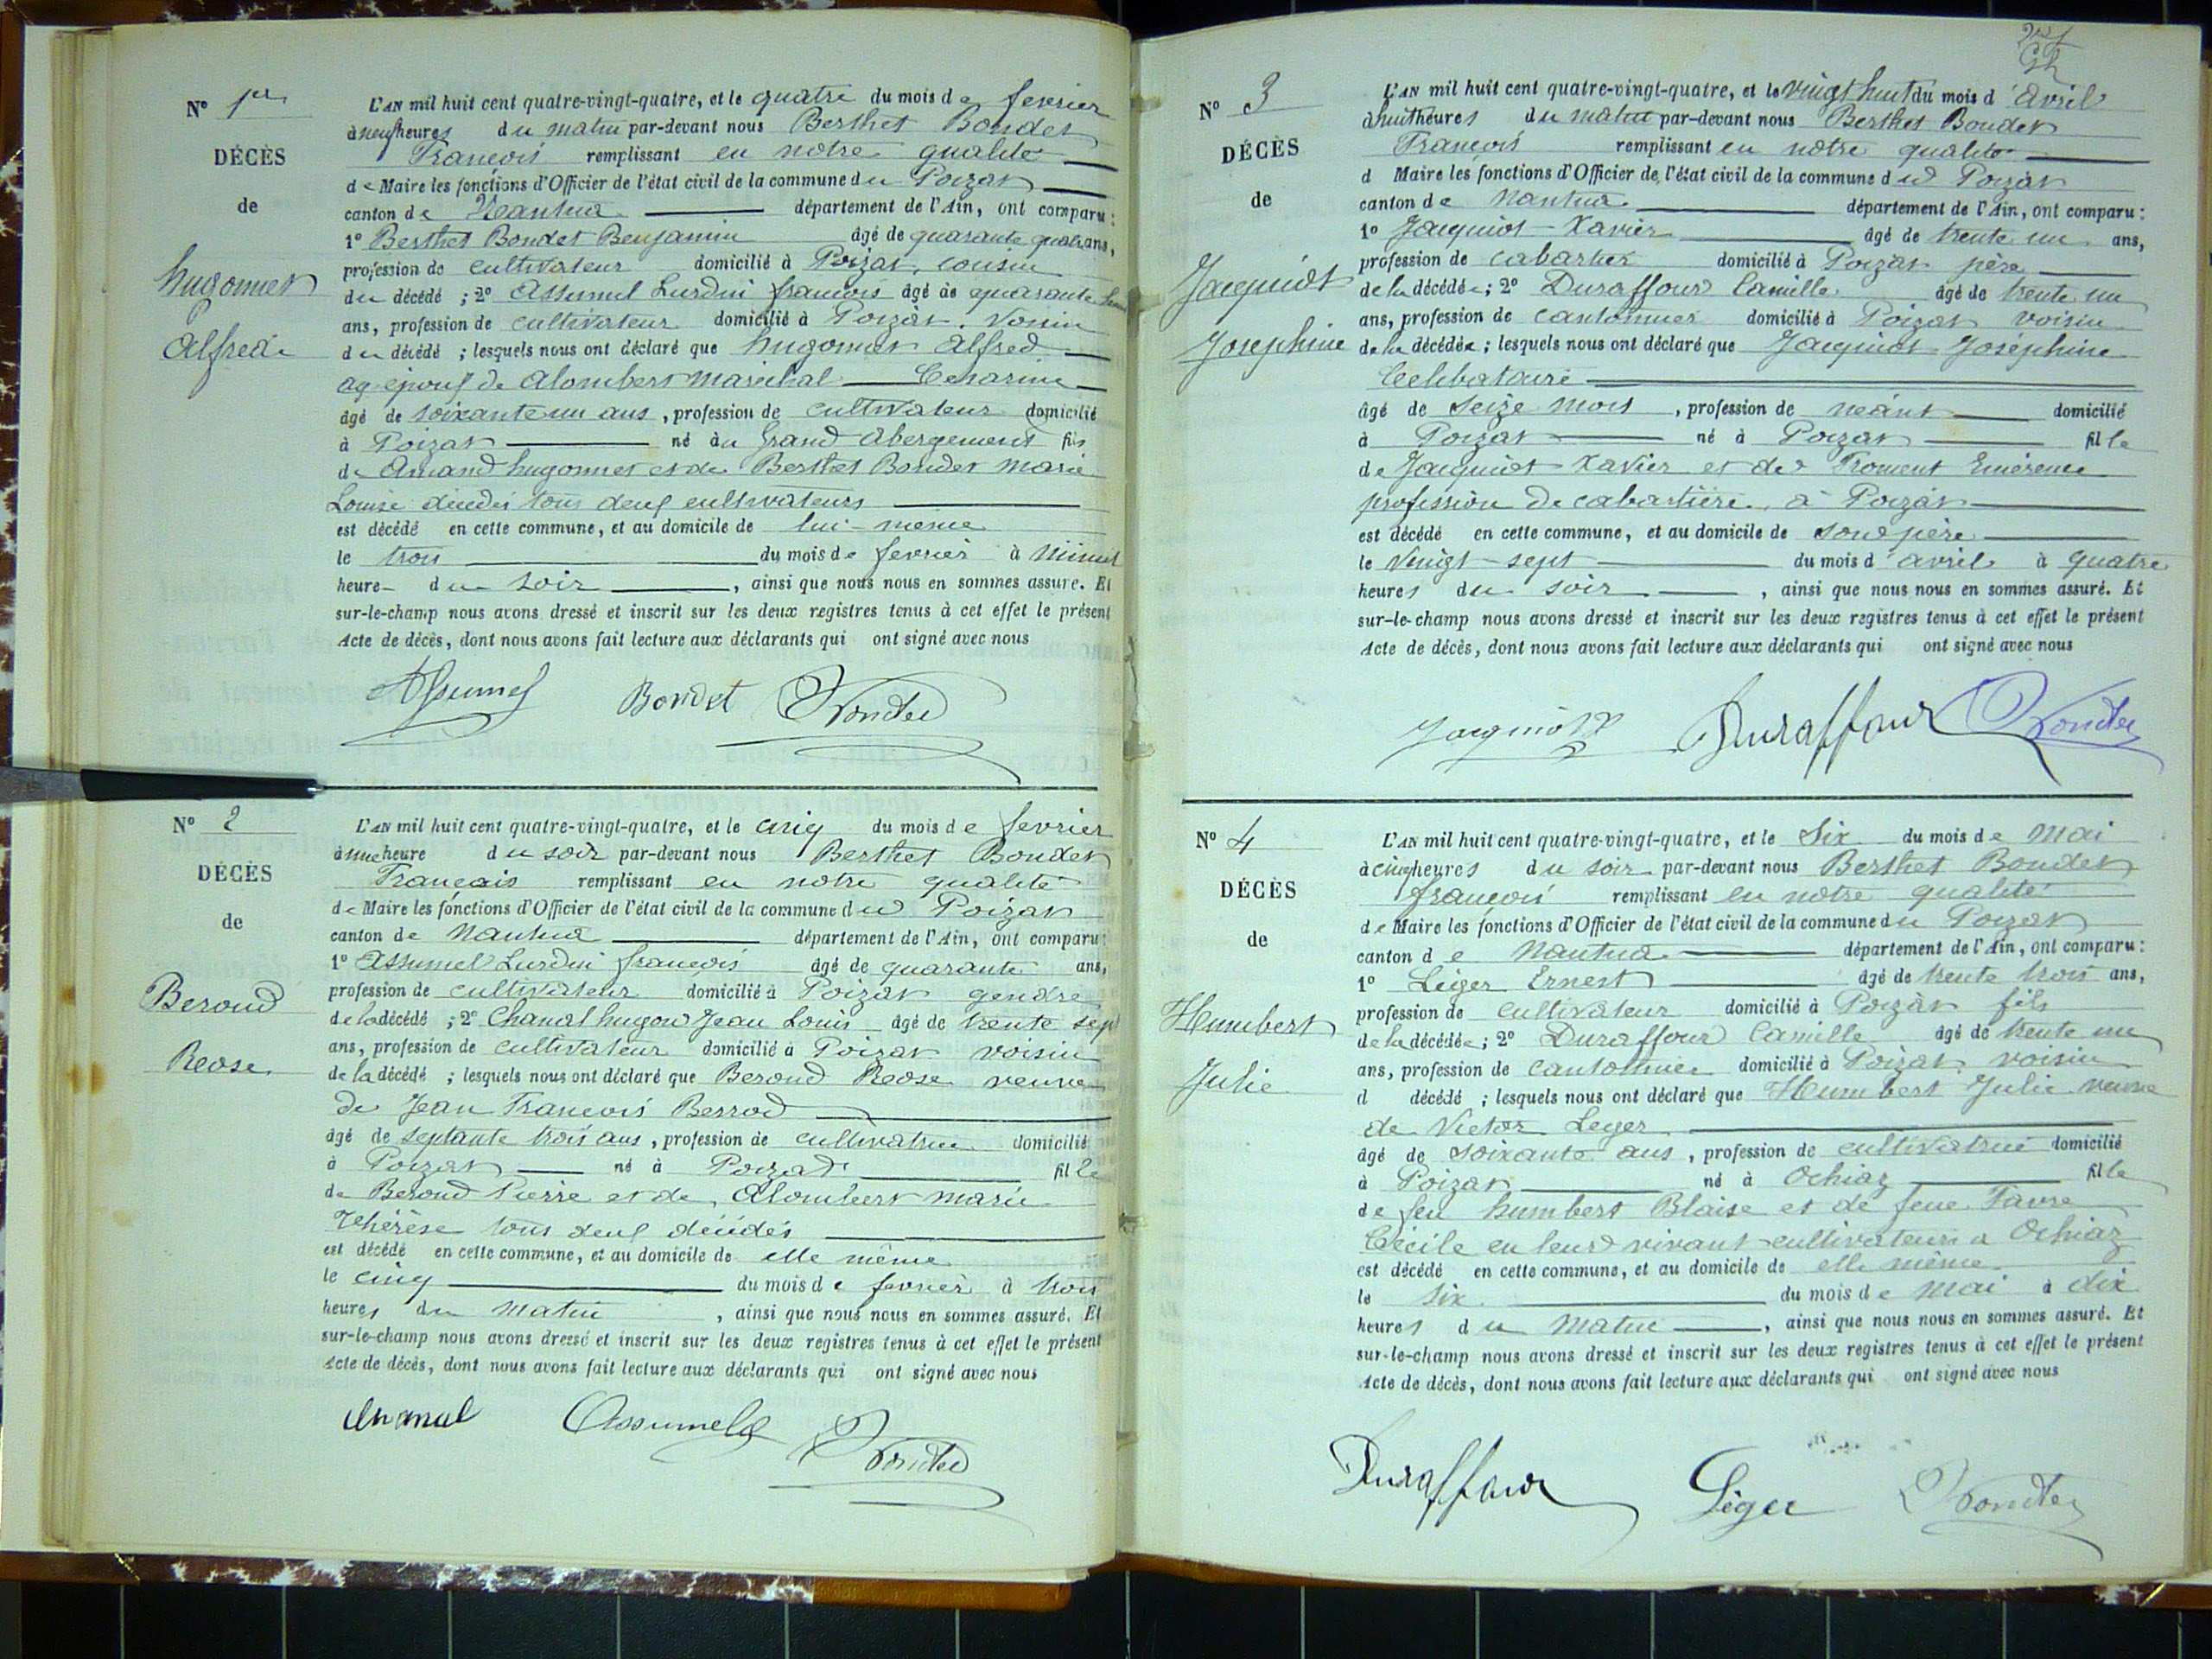 N° 1er
DÉCÈS
de
hugonnet
Alfred
L'AN mil huit cent quatre-vingt-quatre, et le quatre du mois de fevrier
à neuf heures du matin par-devant nous Berthet Bondet
François remplissant en notre qualité
de Maire les fonctions d'Officier de l'état civil de la commune du Poizat
canton de Nantua département de l'Ain, ont comparu :
1° Berthet Bondet Benjamin âgé de quarante quatre ans,
profession de cultivateur domicilié à Poizat, cousin
du décédé ; 2° Assumel Lurdin françois âgé de quarante
ans, profession de cultivateur domicilié à Poizat. Voisin
du décédé ; lesquels nous ont déclaré que hugonnet Alfred
époux de Alombert Marechal
âgé de soixante un ans, profession de cultivateur domicilié
à Poizat né au Grand Abergement fils
de Amand hugonnet et de Berthet Bondet Marie
Louise décédés tous deux cultivateurs
est décédé en cette commune, et au domicile de lui-meme
le trois du mois de fevrier à Minuit
heure du soir, ainsi que nous nous en sommes assuré. Et
sur-le-champ nous avons dressé et inscrit sur les deux registres tenus à cet effet le présent
Acte de décès, dont nous avons fait lecture aux déclarants qui ont signé avec nous
Assumel Bondet Bondet
N° 2
DÉCÈS
de
Beroud
Reose
L'AN mil huit cent quatre-vingt-quatre, et le cinq du mois de fevrier
à une heure du soir par-devant nous Berthet Bondet
Français remplissant en notre qualité
de Maire les fonctions d'Officier de l'état civil de la commune du Poizat
canton de Nantua département de l'Ain, ont comparu :
1° Assumel Lurdin françois âgé de quarante ans,
profession de cultivateur domicilié à Poizat gendre
de la décédé ; 2° Chanal hugon Jean Louis âgé de trente sept
ans, profession de cultivateur domicilié à Poizat voisin
de la décédé ; lesquels nous ont déclaré que Beroud Reose veuve
de Jean François Berrod
âgé de septante trois ans, profession de cultivatrice domicilié
à Poizat né à Poizat fille
de Beroud Pierre et de Alombert marie
Thérèse tous deux décédés
est décédé en cette commune, et au domicile de elle même
le cinq du mois de fevrier à trois
heures du matin, ainsi que nous nous en sommes assuré. Et
sur-le-champ nous avons dressé et inscrit sur les deux registres tenus à cet effet le présent
Acte de décès, dont nous avons fait lecture aux déclarants qui ont signé avec nous
chanal Assumel Bondet
N° 3
DÉCÈS
de
Jacquiot
Josephine
L'AN mil huit cent quatre-vingt-quatre, et le vingt huit du mois d'avril
à huit heures du matin par-devant nous Berthet Bondet
François remplissant en notre qualité
d Maire les fonctions d'Officier de l'état civil de la commune du Poizat
canton de Nantua département de l'Ain, ont comparu :
1° Jacquiot Xavier âgé de trente un ans,
profession de cabartier domicilié à Poizat père
de la décédée ; 2° Duraffour Camille âgé de trente un
ans, profession de cantonnier domicilié à Poizat voisin
de la décédée ; lesquels nous ont déclaré que Jacquiot Joséphine
Celibataire
âgé de seize mois, profession de néant domicilié
à Poizat né à Poizat fille
de Jacquiot Xavier et de Froment Emérence
profession de cabartière à Poizat
est décédé en cette commune, et au domicile de son père
le Vingt-sept du mois d'avril à quatre
heures du soir, ainsi que nous nous en sommes assuré. Et
sur-le-champ nous avons dressé et inscrit sur les deux registres tenus à cet effet le présent
Acte de décès, dont nous avons fait lecture aux déclarants qui ont signé avec nous
Jacquiot X Duraffour Bondet
N° 4
DÉCÈS
de
Humbert
Julie
L'AN mil huit cent quatre-vingt-quatre, et le Six du mois de Mai
à cinq heures du soir par-devant nous Berthet Bondet
françois remplissant en notre qualité
de Maire les fonctions d'Officier de l'état civil de la commune du Poizat
canton de Nantua département de l'Ain, ont comparu :
1° Léger Ernest âgé de trente trois ans,
profession de cultivateur domicilié à Poizat fils
de la décédée ; 2° Duraffour Camille âgé de trente un
ans, profession de cantonnier domicilié à Poizat voisin
d décédé ; lesquels nous ont déclaré que Humbert Julie veuve
de Victor Leger
âgé de soixante ans, profession de cultivatrice domicilié
à Poizat né à Ochiaz fille
de feu humbert Blaise et de feue Favre
Cécile en leur vivant cultivateurs a Ochiaz
est décédé en cette commune, et au domicile de elle même
le Six du mois de Mai à dix
heures du Matin, ainsi que nous nous en sommes assuré. Et
sur-le-champ nous avons dressé et inscrit sur les deux registres tenus à cet effet le présent
Acte de décès, dont nous avons fait lecture aux déclarants qui ont signé avec nous
Duraffour Léger Bondet